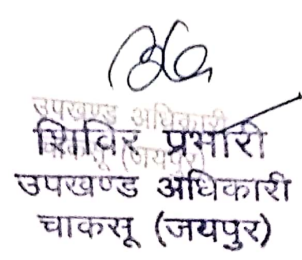 उपखण्ड अधिकारी
शिविर प्रभारी
उपखण्ड अधिकारी
चाकसू (जयपुर)